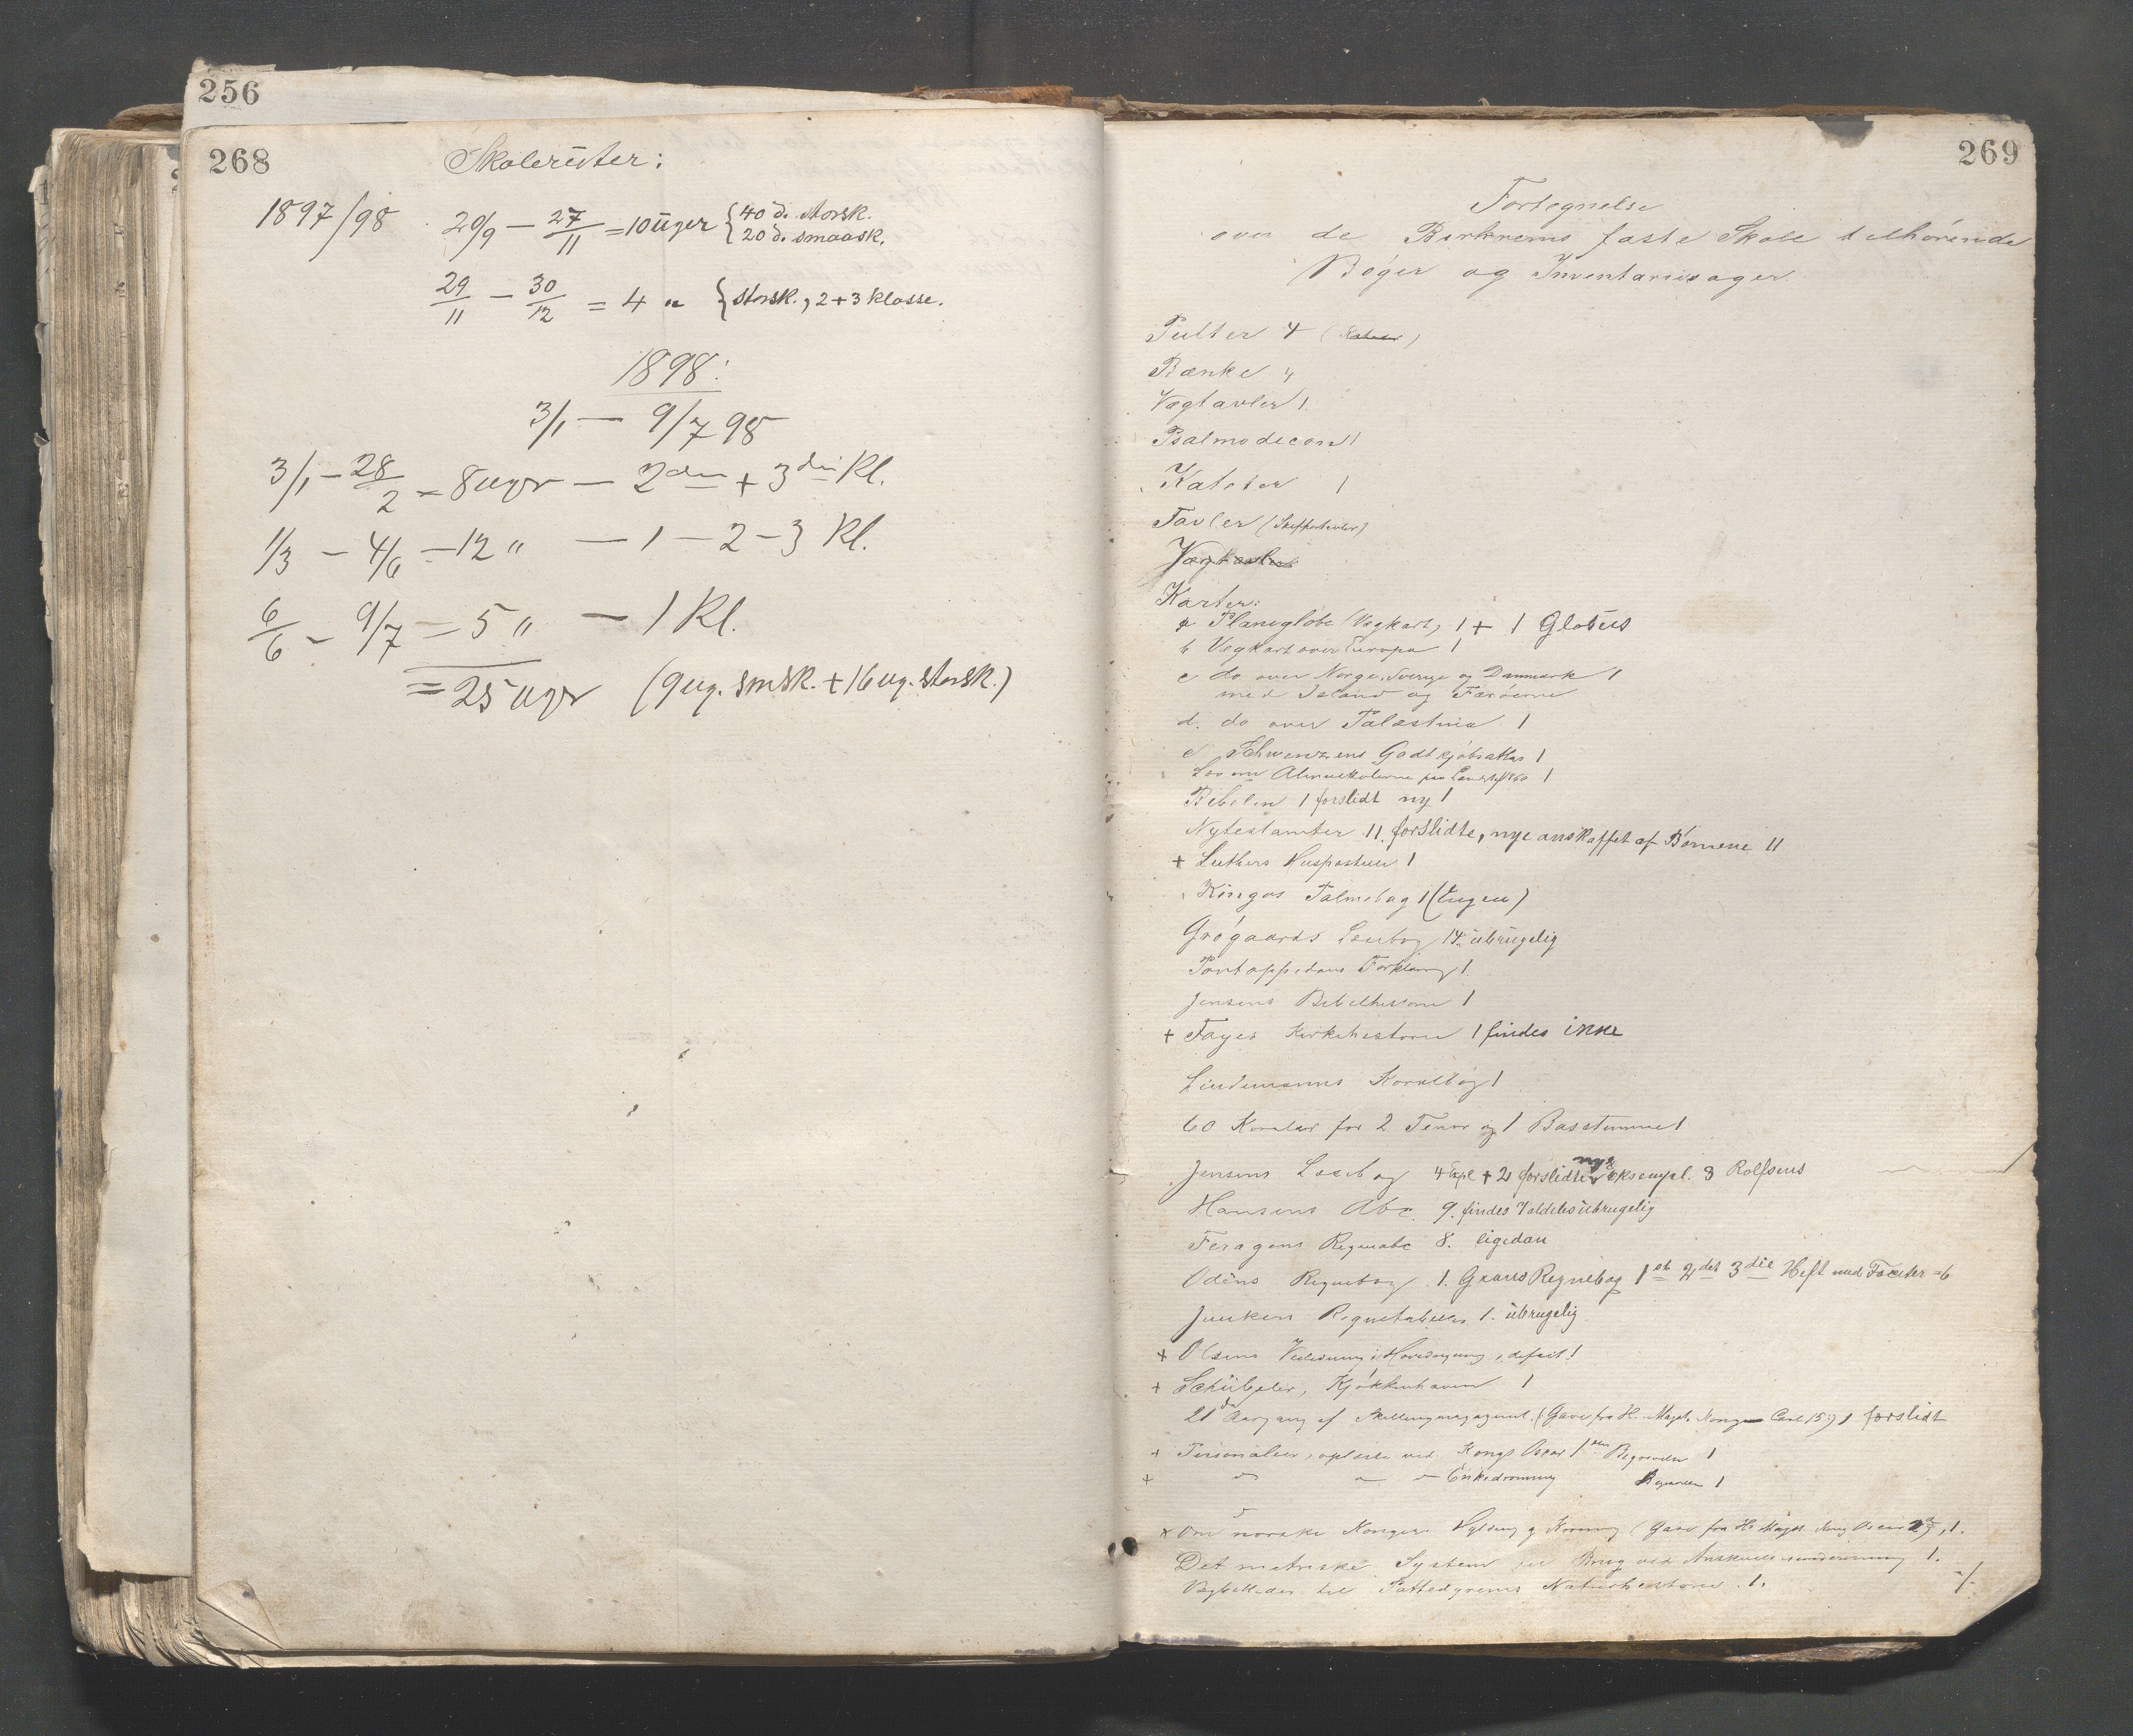 256
268
Skolerüter:
1897/98 20/9 — 27/11 = 10 üger { 40 d. storsk.
20 d. smaask.
29/11 — 30/12 = 4 " { storsk., 2+3 klasse.
1898:
3/1 — 9/7 98
3/1 — 28/2 = 8 uger — 2den + 3die Kl.
1/3 — 4/6 — 12 " — 1 — 2 — 3 Kl.
6/6 — 9/7 = 5 " — 1 Kl.
= 25 uger (9 ug. smsk. + 16 ug. storsk.)
269
Fortegnelse
over de Birkrems faste Skole tilhørende
Bøger og Inventariesager.
Pulter 4
Bænke 4
Vægtavler 1.
Psalmodicon 1
Kateter 1
Tavler (Skiffertavler)
Vægtavler
Karter:
a Planiglobe (Vægkart) 1 + 1 Globus
b Vægkart over Europa 1
c do over Norge, Sverige og Danmark 1
med Island og Færöerne
d. do over Palæstina 1
e Schwenzens Godtkjøbsatlas 1
Lov om Almueskolerne paa Landet 1860 1
Bibelen 1 forslidt ny 1
Nytestamter 11. forslidte, nye anskaffet af Børnene 11
+ Luthers Huspostille 1
Kingos Salmebog 1 (Ingen)
Grøgaards Læsebog 14. übrügelig
Pontoppidans Forklaring 1.
Jensens Bibelhistorie 1
+ Fayes Kirkehistorie 1 findes ikke
Lindemanns Koralbog 1
60 Koraler for 2 Tenor og 1 Basstemme 1
Jensens Læsebog 4 Expl + 2 forslidte nye eksempl. 3 Rolfsens
Hansens Abc. 9. findes Taldeles übrugelig
Feragens Regneabc 8. ligedan
Odins Regnebog 1. Grans Regnebog 1ste 2det 3die Heft med Faciter = 6
Juukers Regnetabeller 1. übrugelig
+ Olsens Veiledning i Havedyrkning, defect 1
+ Schübeler, Kjøkkenhaven 1
21de Aargang af Skillingmagazinet. (Gave fra H. Majst. Kong Carl 15) 1 forslidt
+ Personalier, oplæste ved Kongs Oscar 1stes Begravelse 1
+ " " " Enkedronning Begravelse 1
x Om norske Kongers Hylding og Kroning (Gave fra H. Majst. Kong Oscar 2den), 1.
Det metriske System til Brug ved Anskuelsesundervisning 1.
Vægbilleder til Pattedyrenes Naturhistorie. 1.